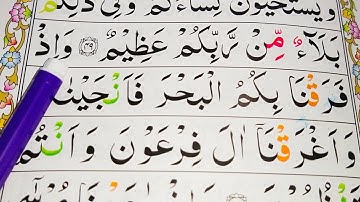 وَيَسْتَحْيُوْنَ نِسَآءَكُمْ وَفِيْ ذٰلِكُمْ
بَلَآءٌ مِّنْ رَّبِّكُمْ عَظِيْمٌ ﴿٤٩﴾ وَاِذْ
فَرَقْنَا بِكُمُ الْبَحْرَ فَاَنْجَيْنٰ
وَاَغْرَقْنَآ اٰلَ فِرْعَوْنَ وَاَنْتُمْ